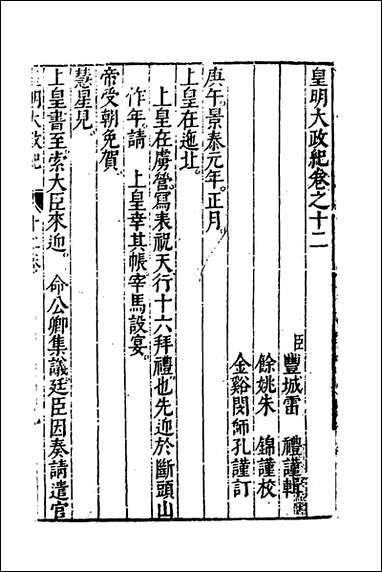 皇明大政紀卷之十二
臣豐城雷　禮謹輯
餘姚朱　錦謹校
金谿閔師孔謹訂
庚午景泰元年正月
上皇在迤北
上皇在虜營寫表祝天行十六拜禮也先迎於斷頭山
作年請　上皇幸其帳宰馬設宴
帝受朝免賀
慧星見
上皇書至索大臣來迎　命公卿集議廷臣因奏請遣官
皇明大政紀　十二卷